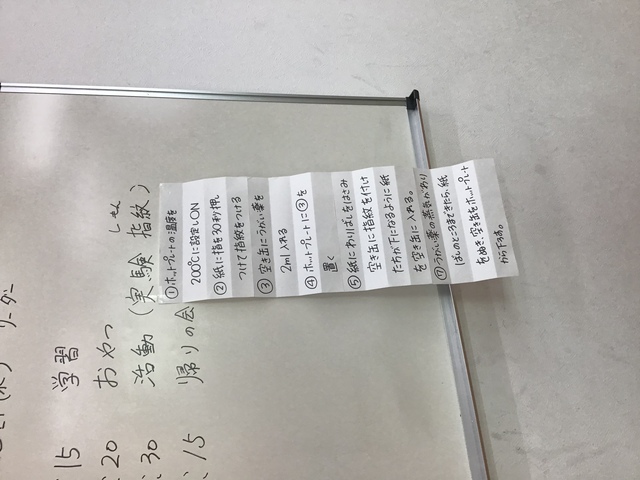 15 学習
20 おやつ
30 活動 (実験 指紋)
しもん
15 帰りの会
①ホットプレートの温度を
200℃に設定しON
②紙に指を30秒押し
つけて指紋をつける
③空き缶にうがい薬を
2ml入れる
④ホットプレートに③を
置く
⑤紙にわりばしをはさみ
空き缶に指紋を付け
たちが下になるように紙
を空き缶に入れる。
⑦うがい薬の蒸気があり
ばしのところまできたら、紙
をぬき、空き缶をホットプレート
から下ろす。